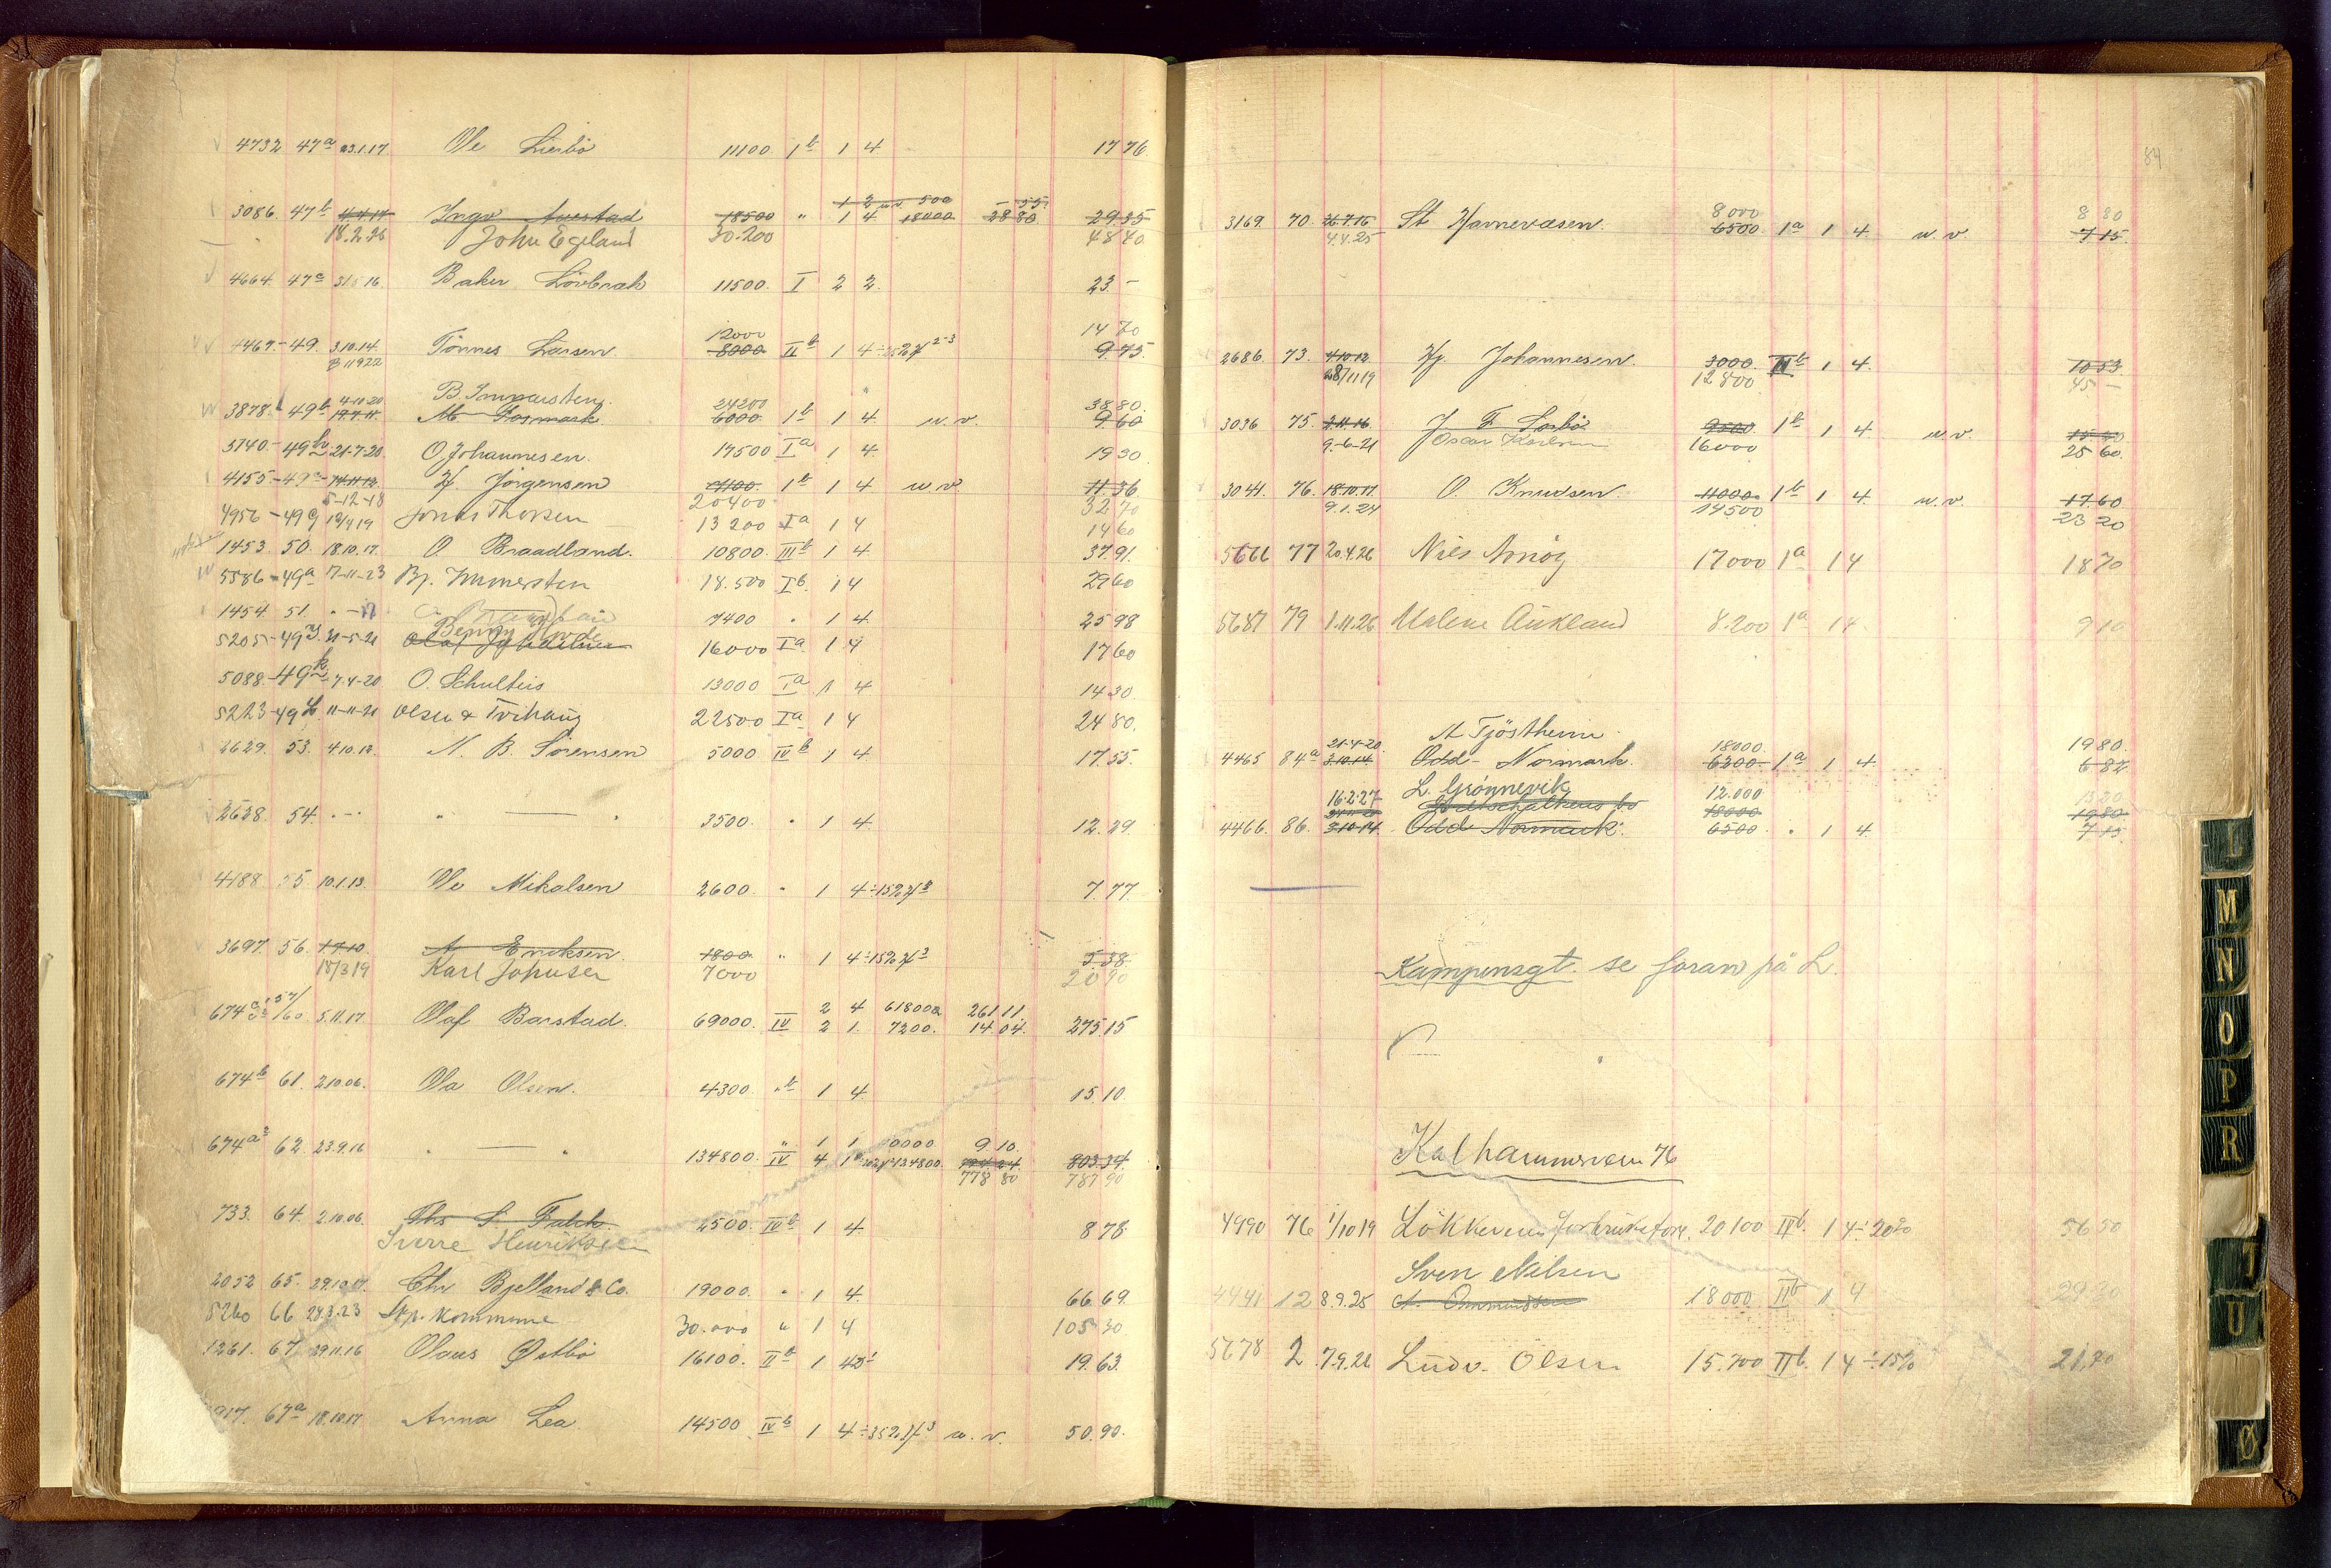 4732 47a 23.1.17 Ole Lierbö 11100. 1b 1 4 17 76
1 2 u.v. 500 - 55
3086. 47b 4.4.14 Ingv. Auestad 18500 " 1 4 18000 28 80 29.35
18.2.26 John Egeland 30.200 48 40
4664. 47c 31.5 16. Baker Lövbrak 11500. I 2 2. 23. –
12000 14 70
4467.-49. 3.10.14. Tönnes Larsen 8000 IIb 1 4 9.75
8 11922
4.10.20 B. Immersten. 24200 38 80
3878. 49b 19.7.11. M. Fosmark. 6000. 1b 1 4. u.v. 9 60
5140.-49h 21-7-20. O. Johannesen. 17500 Ia 1 4. 19 30
4155-49 14.11.12. H. Jörgensen 7100. 1b 1 4 u.v. 11 36
5-12-18 20400 32 70
4956-49g 12/4 19 Jonas Thorsen 13 200 Ia 1 4 14 60
1453. 50. 18.10.17. O. Braadland. 10800. IIIb 1 4. 37 91.
5586-49a 17-11-23 Bj. Immersten 18.500 Ib. 1 4 29 60
1454. 51. " - 17 7400 " 1 4. 25 98
Benny
5205-49 21-5-21 16000 Ia 1 4 17 60
5088.-49k 7.4-20 O. Schulteis 13000 Ia 1 4 14 30
5223-49 11-11-21 Olsen & Tvihaug 22500 Ia 1 4 24 80.
2629. 53. 4.10.12. N. B. Sörensen 5000 IVb 1 4. 17 55.
2628. 54. " — " 3500. " 1 4. 12. 29.
4188 55 10.1.13. Ole Mikalsen 2600. " 1 4 ÷15% 7. 77.
3697. 56. 1.7.10. A. Eriksen. 1800. " 1 4 ÷15% 5 38.
18/3 19 Karl Johnsen 7000 20 90
674 57/60. 5.11.17 Olaf Barstad. 69000. IV 2 4 61800 261 11
2 1. 7200. 14 04. 275 15
674b 61. 2.10.06. Ola Olsen. 4300 "b 1 4. 15. 10.
674a 62. 23.9.16 " — " 134800. " 1 1 10000 9 10.
IV 4 1 134800. 803.34.
778 80 787 90
733. 64. 2.10.06. Ths S. Falch. 2500. IVb 1 4. 8 78
Sverre Henriksen
2052 65. 29.10.17. Chr. Bjelland & Co. 19000. " 1 4. 66 69.
5260 66 28.3.23 Stp. Kommune 30.000 " 1 4 105 30
1261. 67. 29.11.16 Olaus Østbö 16100. IIb 1 4 19. 63.
917. 67a 18.10.17 Anna Lea. 14500. IVb 1 4 ÷35% u. v. 50. 90.
84
8000 8 80
3169. 70. 26.7.15 St. Havnevæsen. 6500. 1a 1 4. u. v. 7 15.
4.4.25
2686. 73. 4.10.12 Hj. Johannesen. 3000. IIb 1 4. 10 53
28/11 19 12800 45 –
3036 75. 2.11.16 J. F. Sörbö 9500. 1b 1 4. u.v. 15 20
9-6-21 Oscar Karlsen 16000 25 60.
3041. 76. 18.10.17 O. Knudsen. 11000. 1b 1 4. u.v. 17.60
9.1.24 14500 23 20
5666 77 20.4.26 Nils Arnöy 17000 1a 1 4 18 70
5687 79 1.11.26 Malene Aukland 8.200 1a 1 4 9 10
21-4-20. A. Tjöstheim 18000. 19 80.
4465 84a 3.10.14 Odd. Normark. 6200 1a 1 4. 6 82
L. Grönnevik 12.000 13 20
16.2.27 18000 19 80
4466. 86. 3.10.14. Odd Normark. 6500. " 1 4. 7 15.
Kampensgt. se foran på L.
Kalhammervn 76
4990 76 1/10 19 Lökkeveiens forbruksfore. 20 100 IIb. 1 4 ÷ 20% 56 50
Sven Nilsen
4441 12 8.9.25 A. Ommundsen 18000 IIb 1 4 29 20
5678 2 7.9.26 Ludv. Olsen 15.700 IIb. 1 4 ÷ 15% 21,70
L
M
N
O
P
R
T
U
Ø